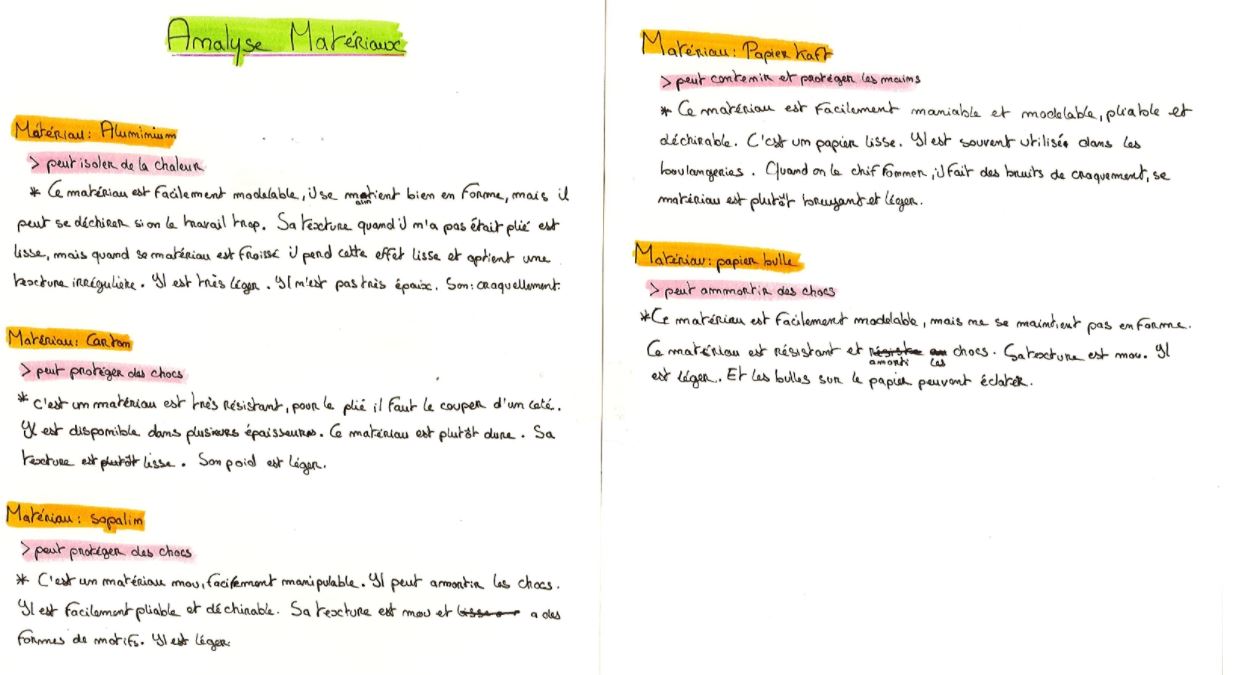 Analyse Matériaux
Matériau: Aluminium
> peut isoler de la chaleur
* Ce matériau est facilement modelable, il se maintient bien en forme, mais il
peut se déchirer si on le travail trop. Sa texture quand il n'a pas était plié est
lisse, mais quand se matériau est froissé il perd cette effet lisse et optient une
texture irrégulière. Il est très léger. Il n'est pas très épaix. Son: craquellement.
Matériau: Carton
> peut protéger des chocs
* C'est un matériau est très résistant, pour le plié il faut le couper d'un coté.
Il est disponible dans plusieurs épaisseurs. Ce matériau est plutôt dure. Sa
texture est plutôt lisse. Son poid est léger.
Matériau: sopalin
> peut protéger des chocs
* C'est un matériau mou, facilement manipulable. Il peut amortir les chocs.
Il est facilement pliable et déchirable. Sa texture est mou et a des
formes de motifs. Il est léger.
Matériau: Papier kaft
> peut contenir et protéger les mains
* Ce matériau est facilement maniable et modelable, pliable et
déchirable. C'est un papier lisse. Il est souvent utilisée dans les
boulangeries. Quand on le chiffonner, il fait des bruits de craquement, se
matériau est plutôt bruyant et léger.
Matériau: papier bulle
> peut ammortir des chocs
* Ce matériau est facilement modelable, mais ne se maintient pas en forme.
Ce matériau est résistant et amorti les chocs. Sa texture est mou. Il
est léger. Et les bulles sur le papier peuvent éclater.